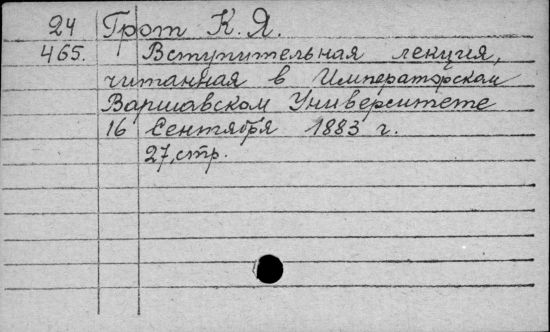 24 Грот К. Я.
465. Вступительная лекция,
читанная в Императорском
Варшавском Университете
16 Сентября 1883 г.
27, стр.